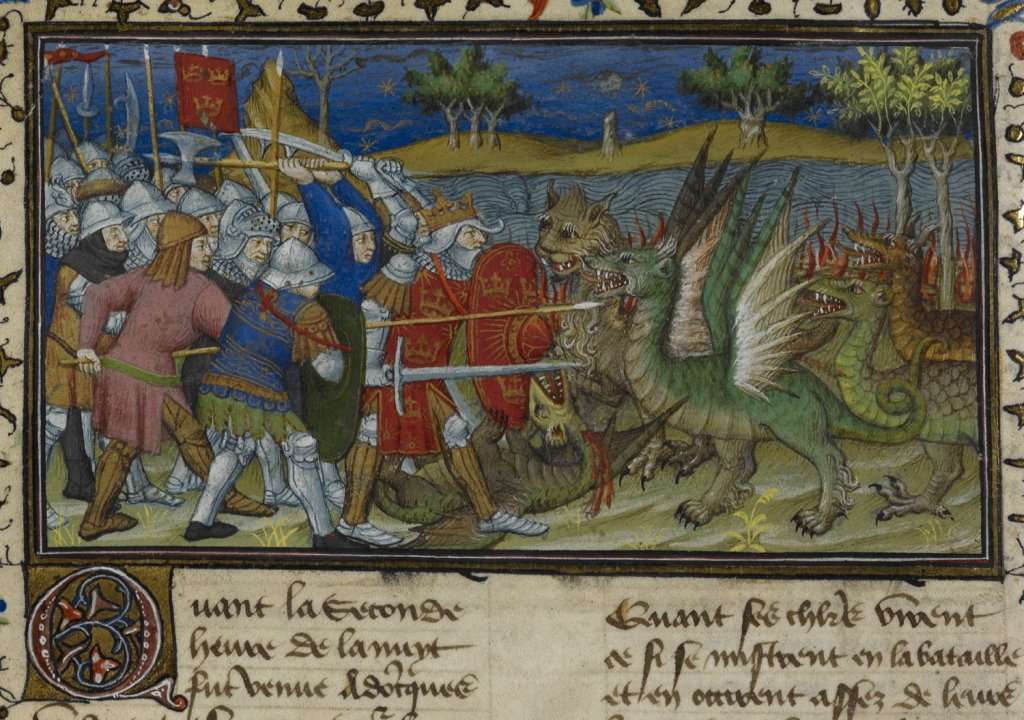 Quant la Seconde
heure de la nuyt
fut venue Adōcques
Quant ses chlr̄s virent
ce si se mistrent en la bataille
et en occirent assez de leurs